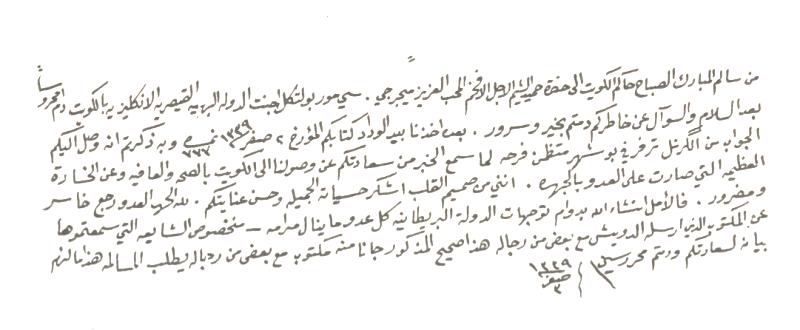 من سالم المبارك الصباح حاكم الكويت الى حضرة حميد الشيم الاجل الافخم المحب العزيز ميجر جي . سي مور بولتكل اجنت الدولة البهية القيصرية الانكليزيه بالكويت دام محروساً
بعد السلام والسوآل عن خاطركم دمتم بخير وسرور . بعده اخذنا بيد الوداد كتابكم المؤرخ ٢ صفر ١٣٣٩ نمرة ٢٢٣ وبه ذكرتم انه وصل اليكم
الجواب من الكرنل ترفر في بوشهر متظمن فرحه لما سمع الخبر من سعادتكم عن وصولنا الى الكويت بالصحه والعافيه وعن الخسارة
العظيمه التي صارت على العدو بالجهره . انني من صميم القلب اشكر حسياته الجميله وحسن عنايتكم . لله الحمد العدو رجع خاسر
ومضرور . فالأمل انشاء الله بدوام توجهات الدولة البريطانيه كل عدو ما ينال مرامه – بخصوص الشايعه التي سمعتموها
عن المكتوب الذي ارسله الدويش مع بعض من رجاله هذا صحيح المذكور جانا منه مكتوب مع بعض من رجاله يطلب المسالمه هذا ما لزم
بيانه لسعادتكم ودمتم محروسين
٣ صفر ١٣٣٩